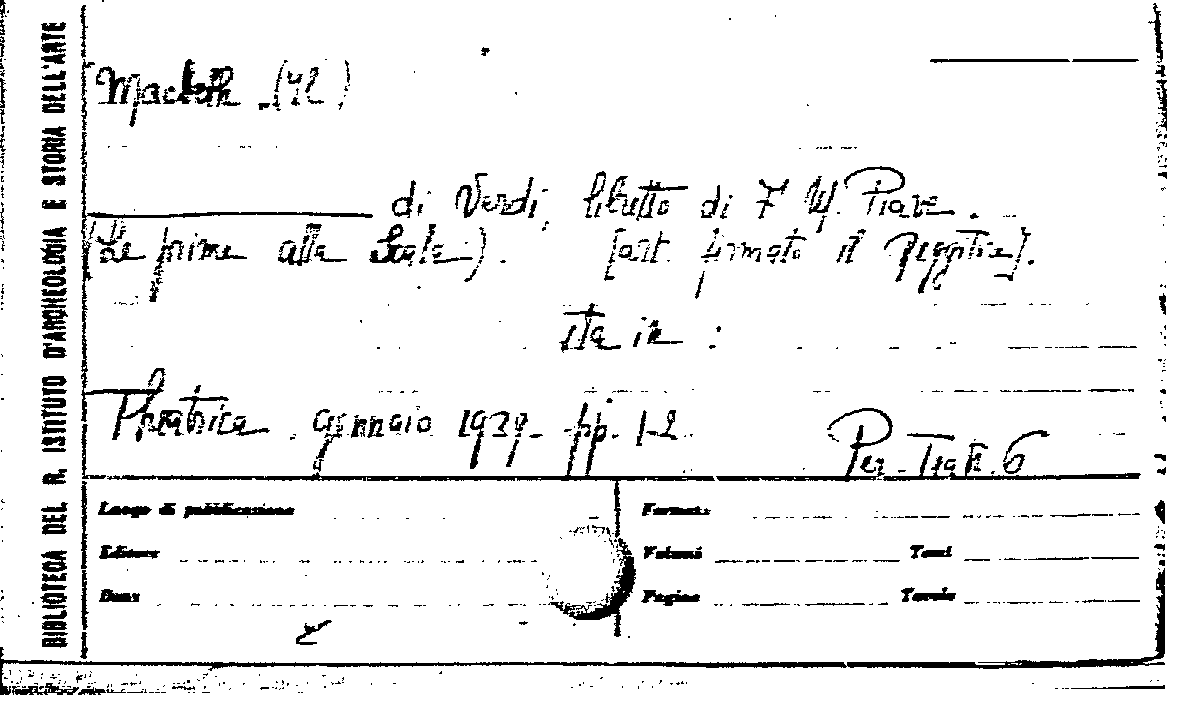 BIBLIOTECA DEL R. ISTITUTO D'ARCHEOLOGIA E STORIA DELL'ARTE
Macbeth (42)
di Verdi, libretto di F. M. Piave.
(Le prime alla Scala). [art. firmato il
sta in :
gennaio 1939 pp. 1-2 Per. Teatr. 6
Luogo di pubblicazione
Formato
Editore
Volumi Tomi
Data
Pagine Tavole